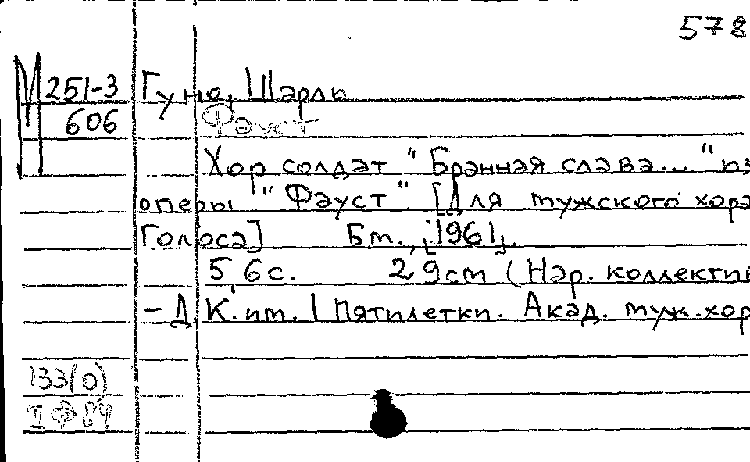 578
М 251-3 Гуно, Шарль
606 Фауст
Хор солдат "Бранная слава..." из
оперы "Фауст" [Для мужского хора
Голоса] Б.м., [1961].
56с. 29cm (Нар. коллектив
- Д.К. им. I Пятилетки. Акад. муж. хор
133(0)
II Ф 84